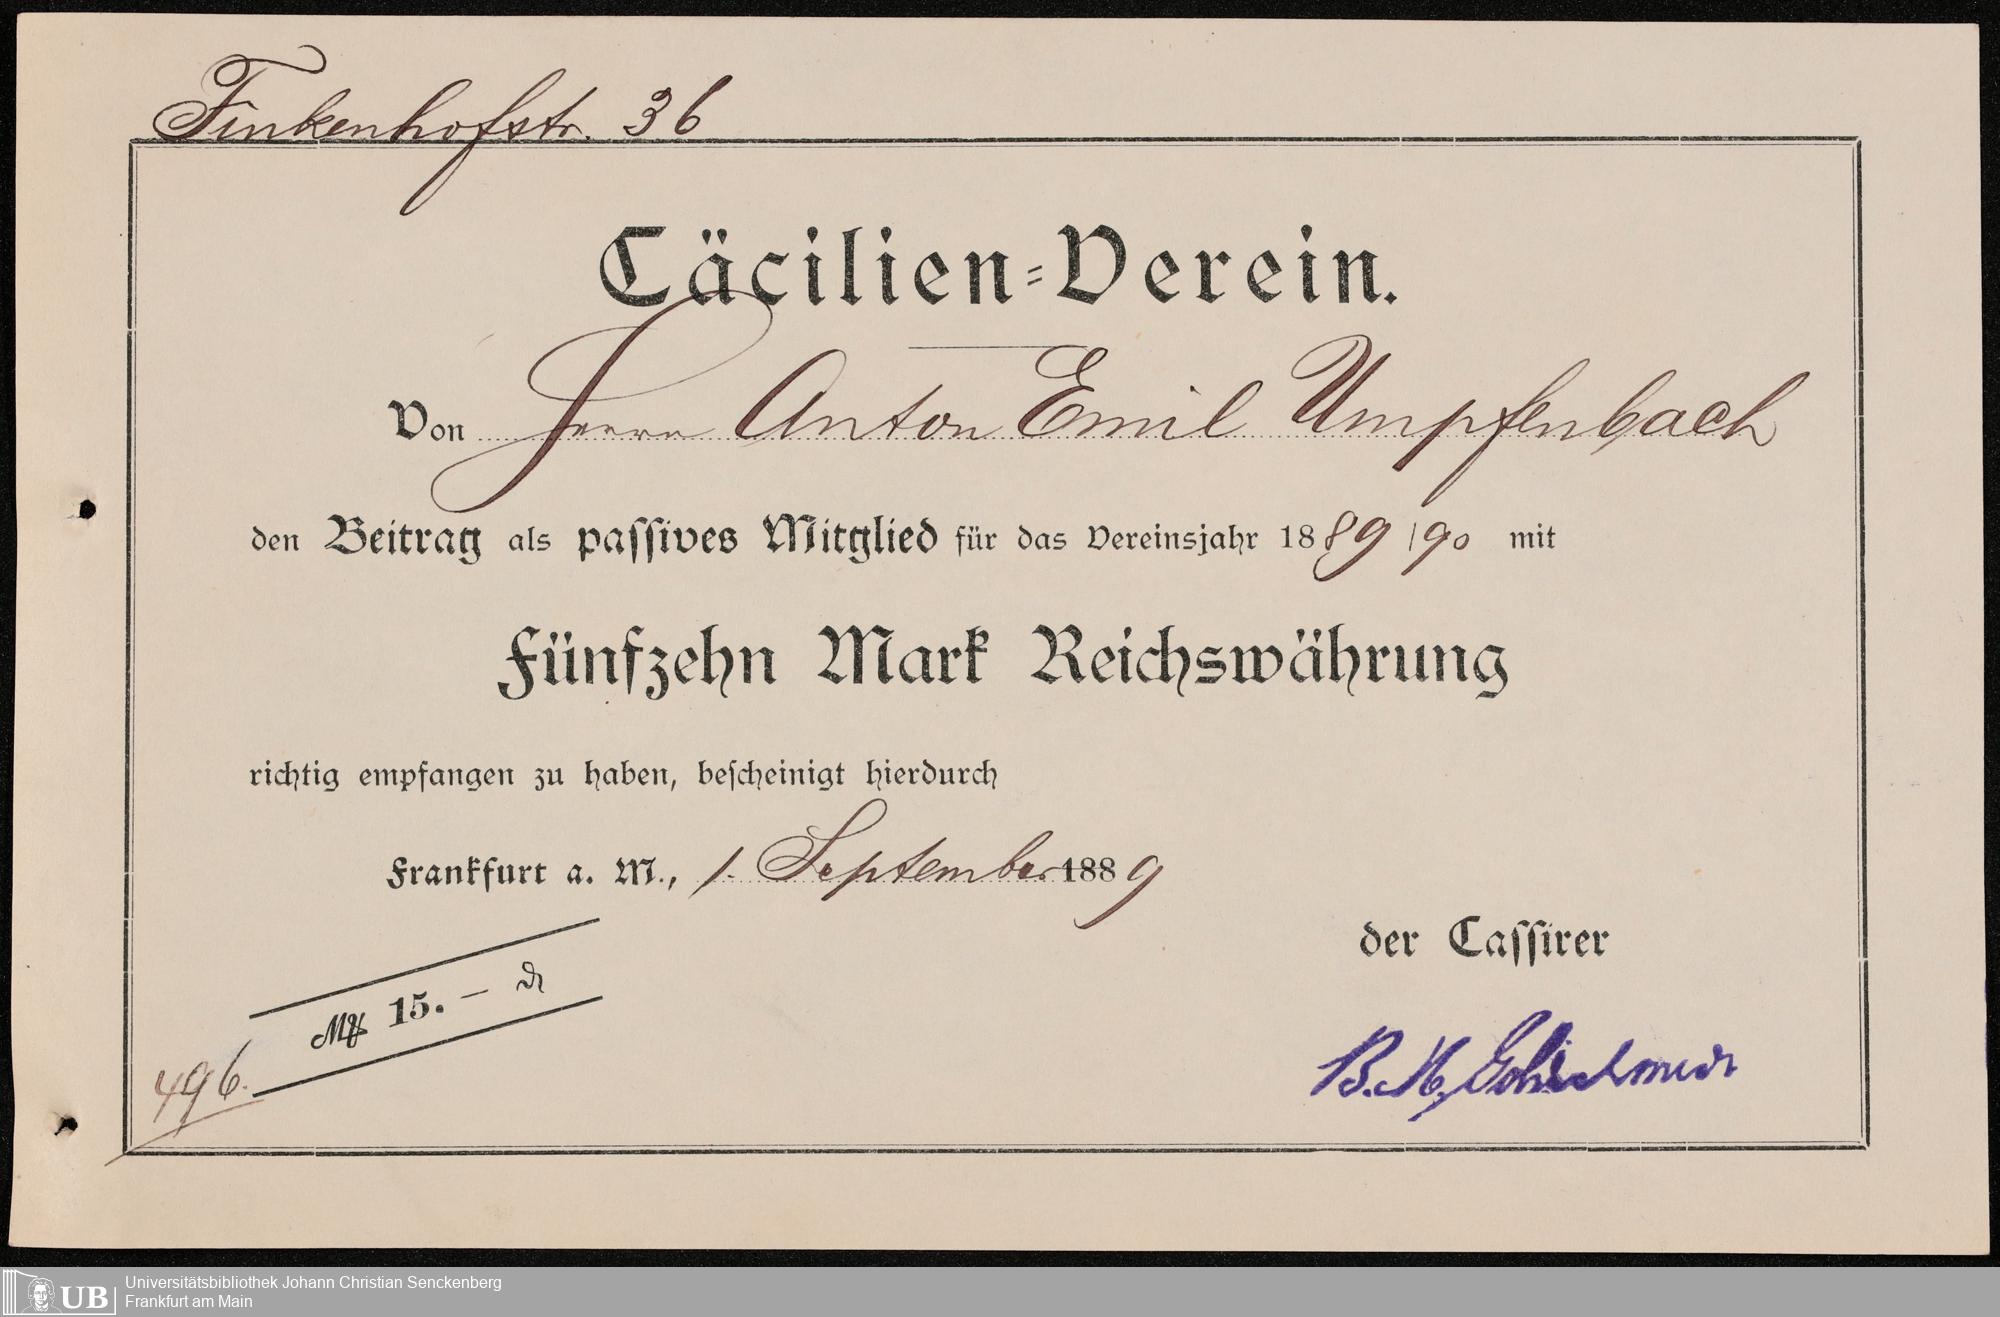 Finkenhofstr. 36
Cäcilien-Verein.
Von Herrn Anton Emil Umpfenbach
den Beitrag als passives Mitglied für das Vereinsjahr 1889/90 mit
Fünfzehn Mark Reichswährung
richtig empfangen zu haben, bescheinigt hierdurch
Frankfurt a. M., 1. September 1889
der Cassirer
Mk 15. —
B. M. Goldschmidt
496.
UB
Universitätsbibliothek Johann Christian Senckenberg
Frankfurt am Main